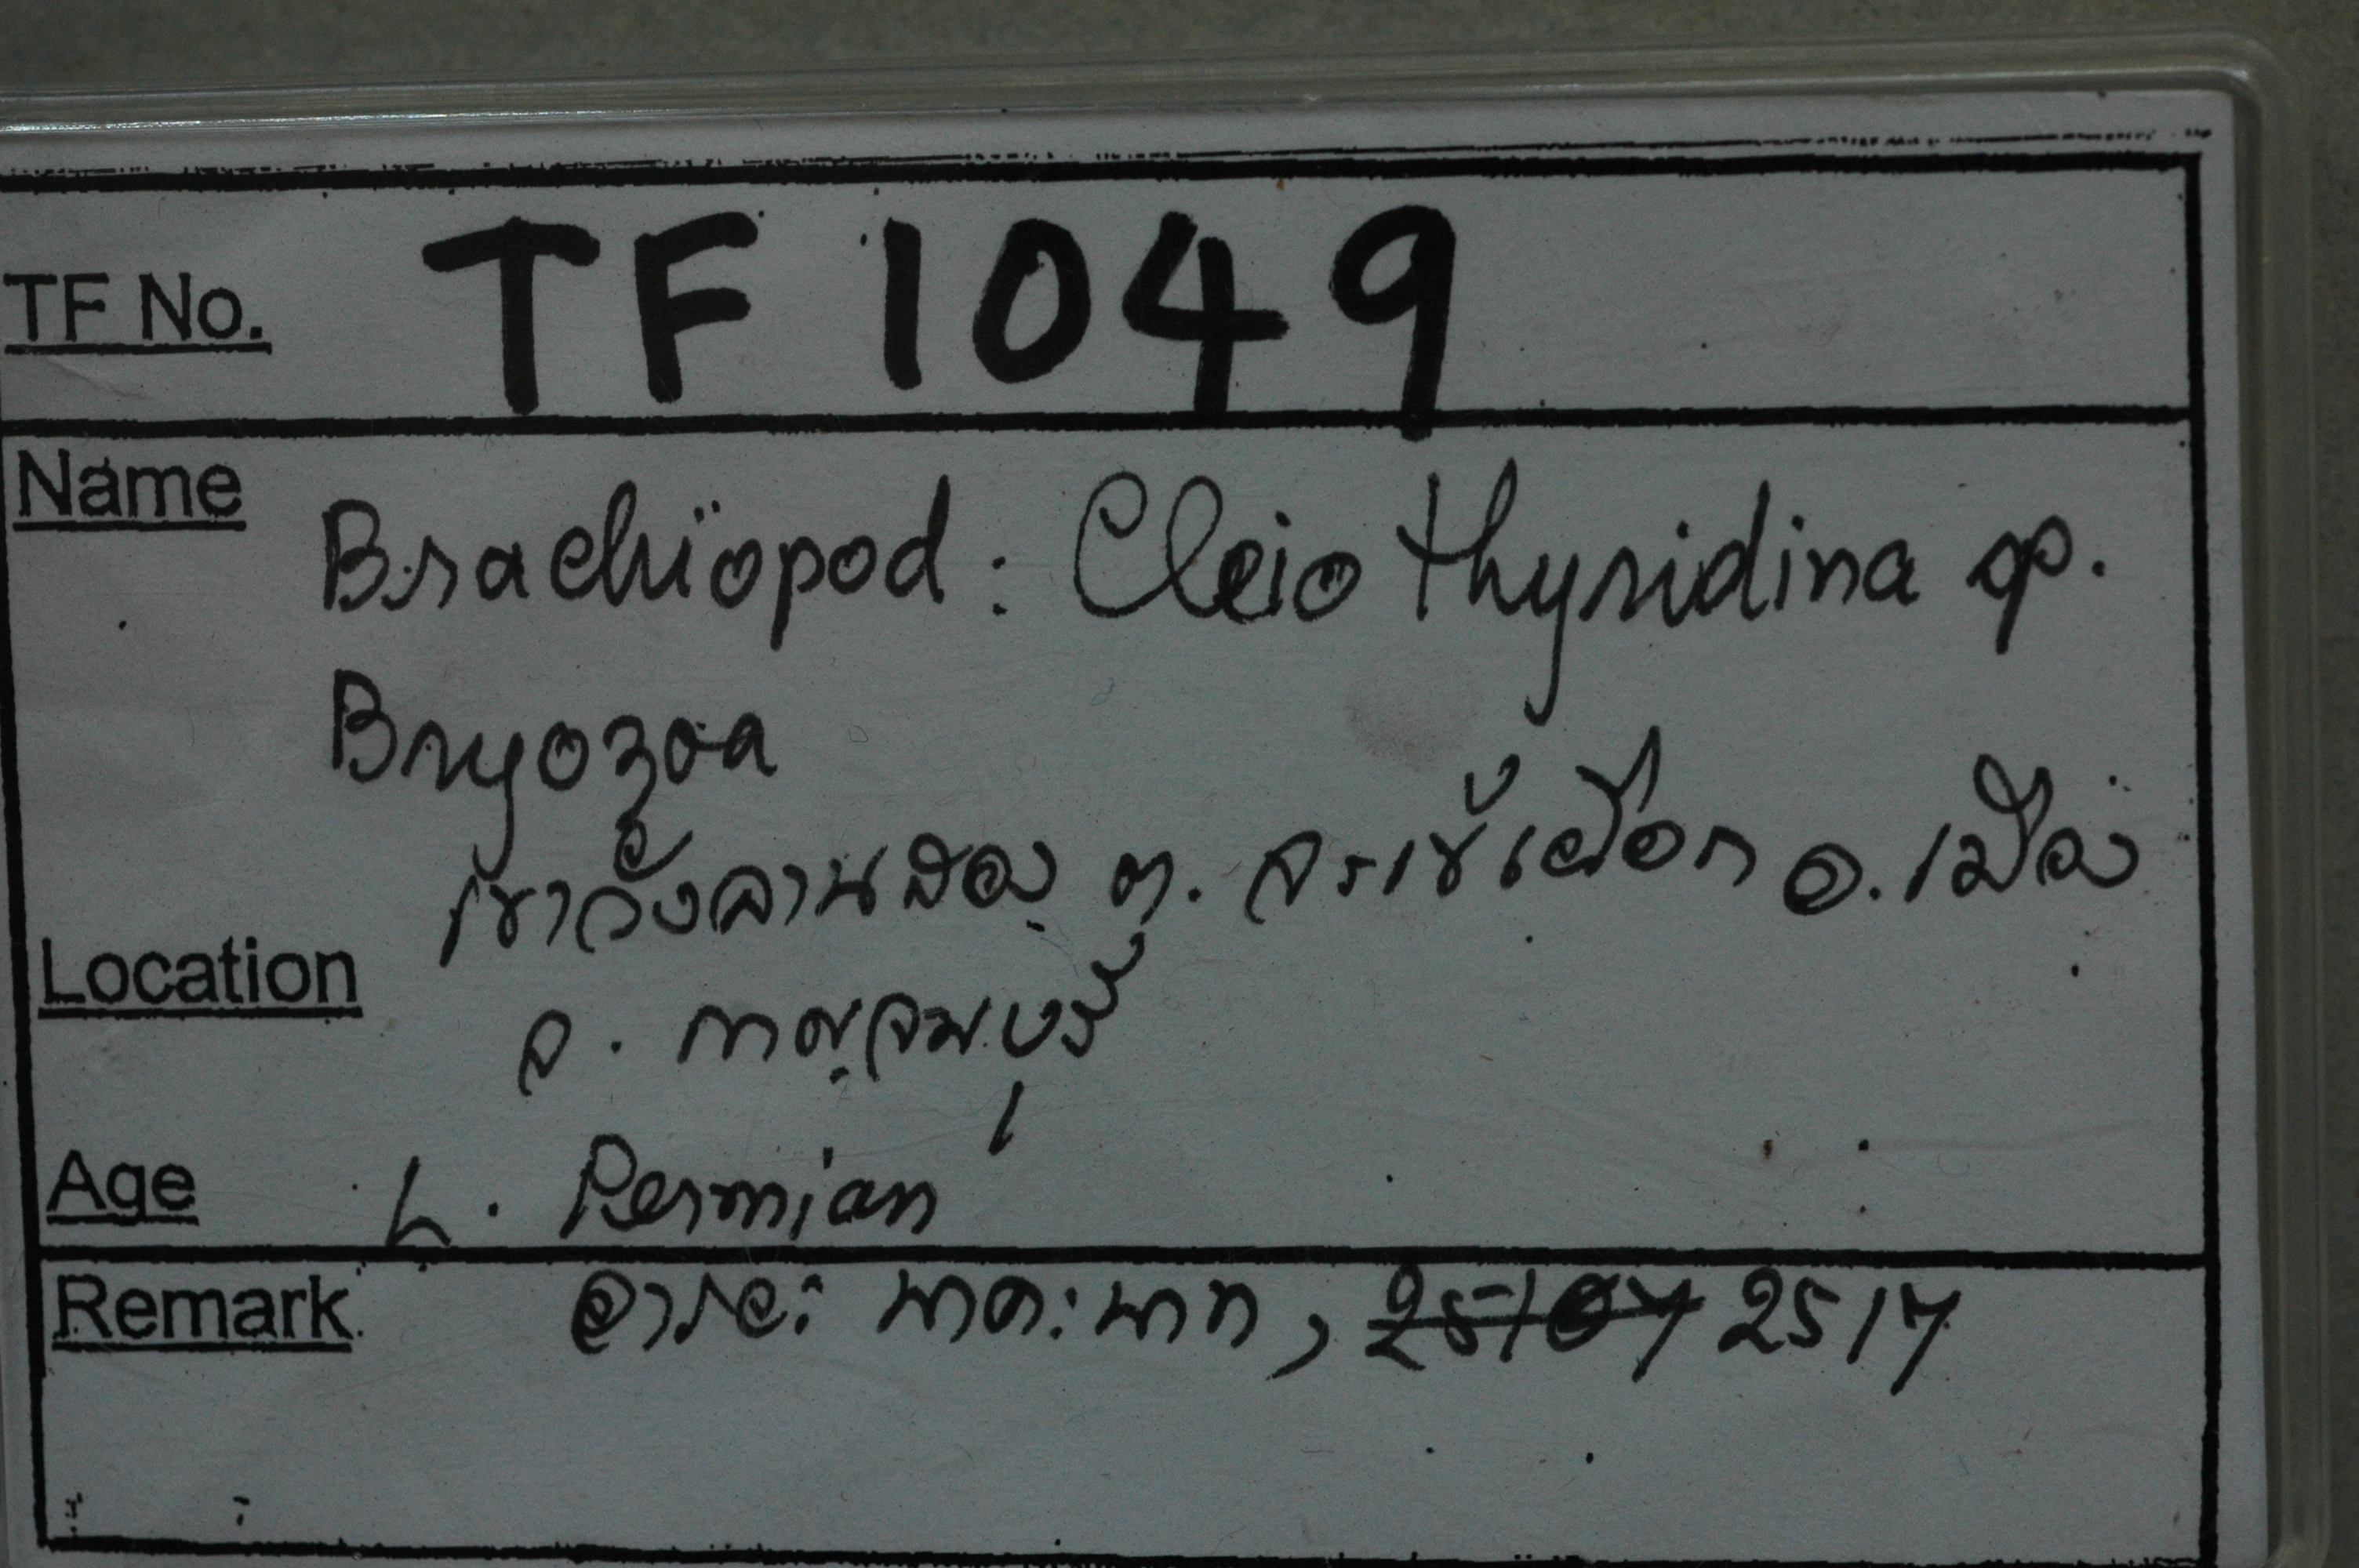 TF No. TF 1049
Name
Brachiopod : Cleiothyridina sp.
Bryozoa
เขาวังลานสอง ต. จรเข้เผือก อ. เมือง
Location
จ. กาญจนบุรี
Age L. Permian
Remark นาคะนาท, 2517